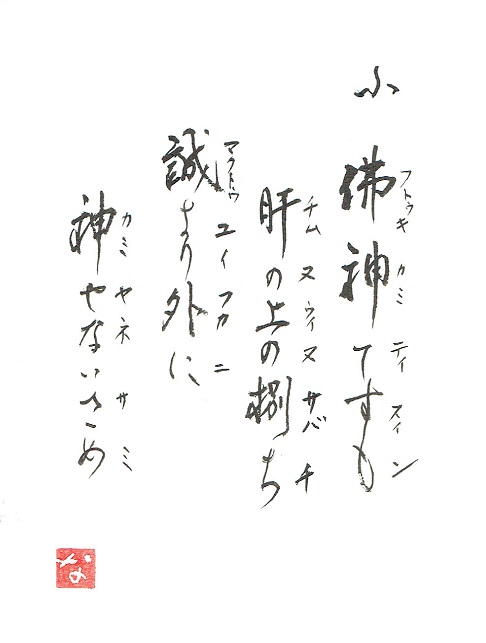 ふ
フトゥキ カミ ティ スィン
佛神てすも
チム ヌ ウィ ヌ サバチ
肝の上の捌ち
マクトゥ ユイ フカ ニ
誠より外に
カミ ヤ ネ サミ
神やないさめ